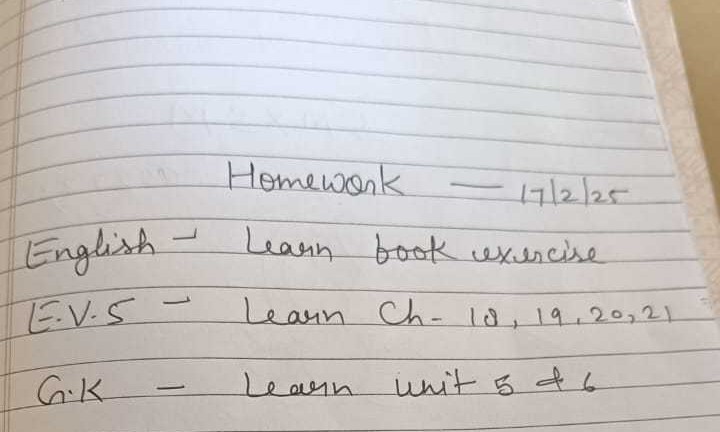 Homework — 17/2/25
English - Learn book exercise
E.V.S - Learn Ch- 18, 19, 20, 21
G.K - Learn unit 5 & 6